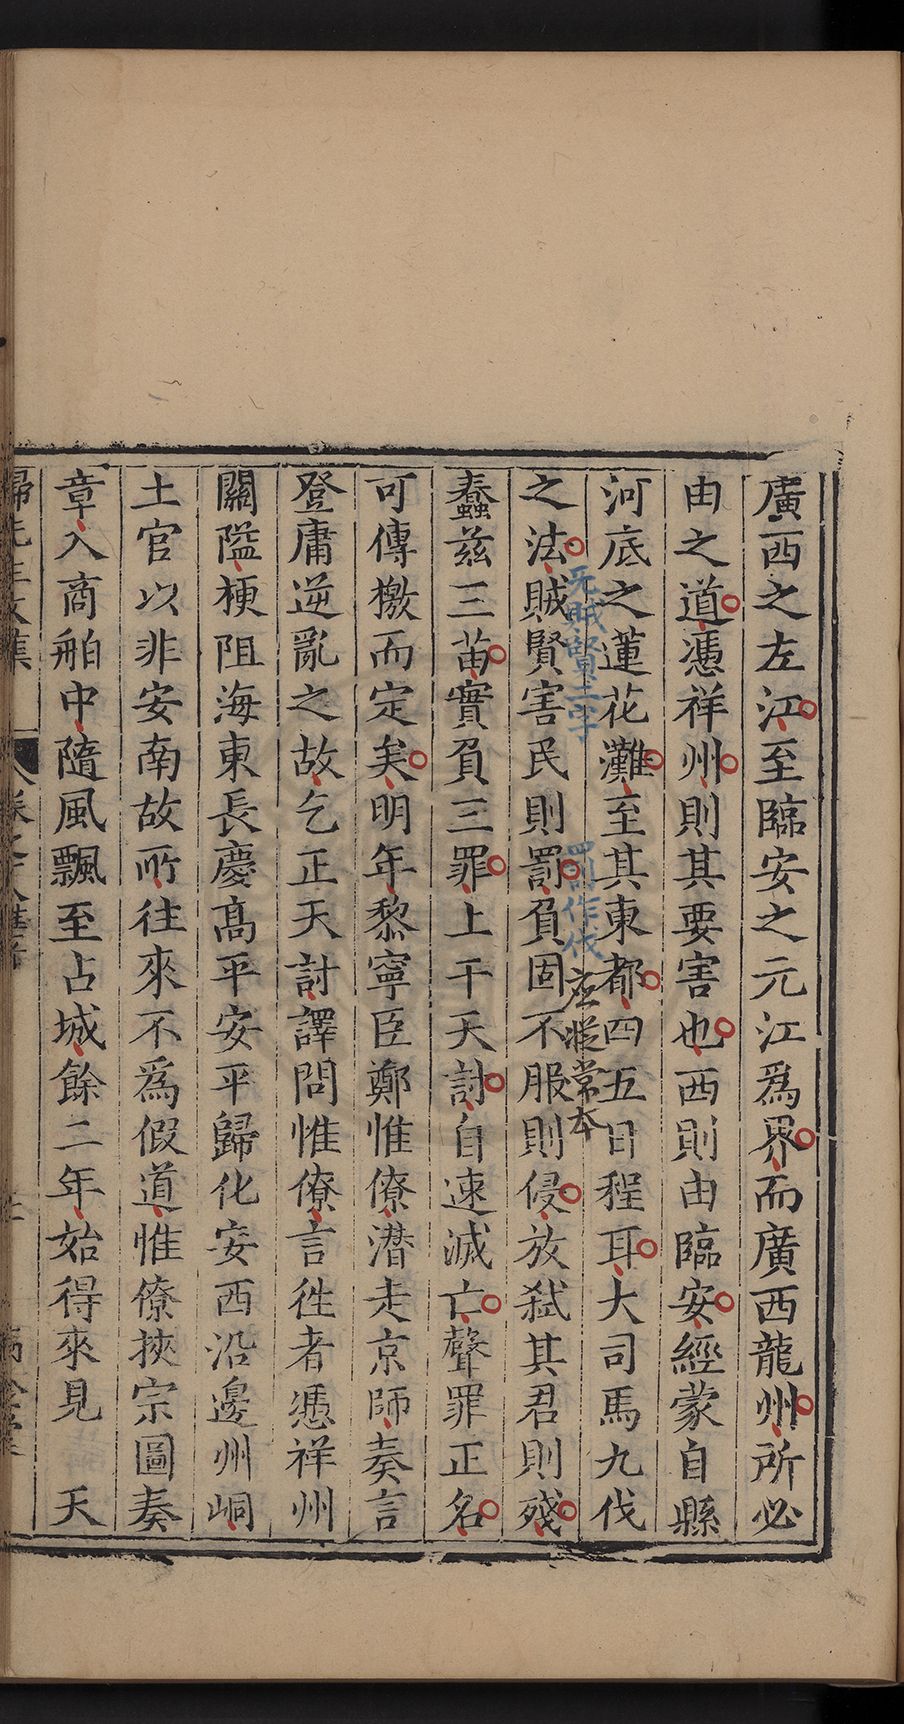 廣西之左江至臨安之元江爲界而廣西龍州所必
由之道憑祥州則其要害也西則由臨安經蒙自縣
河底之蓮花灘至其東都四五日程耳大司馬九伐
无賊賢二字
罰作伐
之法賊賢害民則罰負固不服則侵放弒其君則殘
蠢茲三苗實負三罪上干天討自速滅亡聲罪正名
可傳檄而定矣明年黎寧臣鄭惟僚潛走京師奏言
登庸逆亂之故乞正天討譯問惟僚言徃者憑祥州
關隘梗阻海東長慶高平安平歸化安西沿邊州峒
土官以非安南故所往來不爲假道惟僚挾宗圖奏
章入商舶中隨風飄至占城餘二年始得來見 天